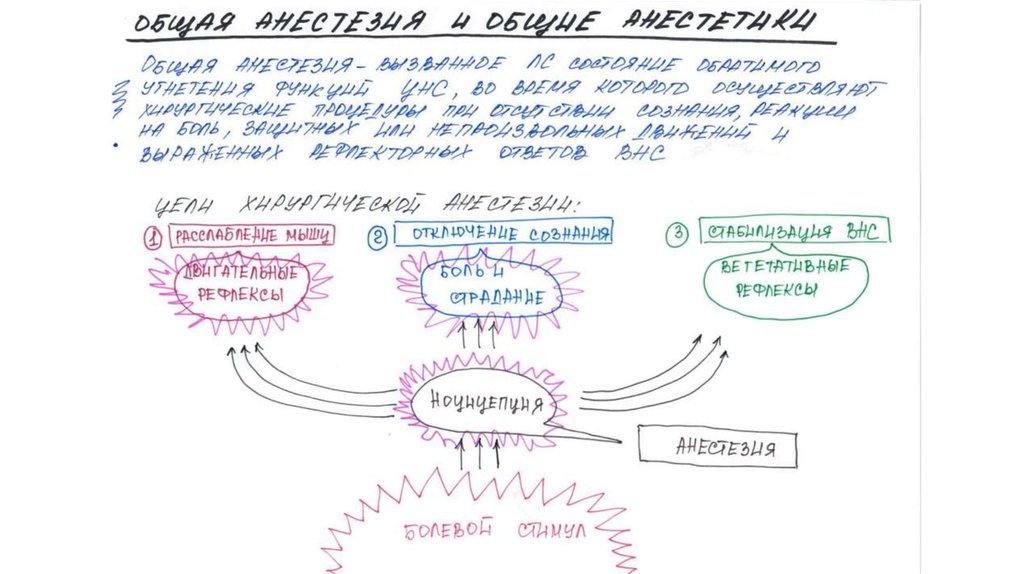 ОБЩАЯ АНЕСТЕЗИЯ И ОБЩИЕ АНЕСТЕТИКИ
ОБЩАЯ АНЕСТЕЗИЯ - ВЫЗВАННОЕ ЛС СОСТОЯНИЕ ОБРАТИМОГО
УГНЕТЕНИЯ ФУНКЦИЙ ЦНС, ВО ВРЕМЯ КОТОРОГО ОСУЩЕСТВЛЯЮТ
ХИРУРГИЧЕСКИЕ ПРОЦЕДУРЫ ПРИ ОТСУТСТВИИ СОЗНАНИЯ, РЕАКЦИИ
НА БОЛЬ, ЗАЩИТНЫХ ИЛИ НЕПРОИЗВОЛЬНЫХ ДВИЖЕНИЙ И
ВЫРАЖЕННЫХ РЕФЛЕКТОРНЫХ ОТВЕТОВ ВНС
ЦЕЛИ ХИРУРГИЧЕСКОЙ АНЕСТЕЗИИ:
1 РАССЛАБЛЕНИЕ МЫШЦ
ДВИГАТЕЛЬНЫЕ
РЕФЛЕКСЫ
2 ОТКЛЮЧЕНИЕ СОЗНАНИЯ
БОЛЬ И
СТРАДАНИЕ
3 СТАБИЛИЗАЦИЯ ВНС
ВЕГЕТАТИВНЫЕ
РЕФЛЕКСЫ
НОЦИЦЕПЦИЯ
АНЕСТЕЗИЯ
БОЛЕВОЙ СТИМУЛ